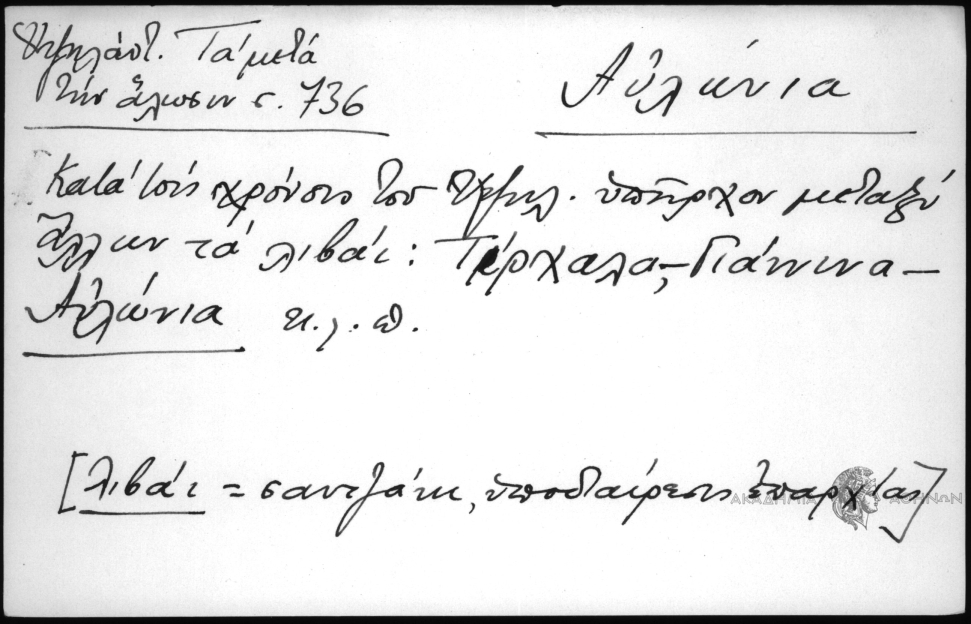 Ὑψηλάντ. Τά μετά
τήν ἅλωσιν σ. 736
Αὐλώνια
Κατά τούς χρόνους τοῦ Ὑψηλ. ὑπῆρχον μεταξύ
ἄλλων τά λιβάι: Τρίχαλα, – Γιάννινα –
Αὐλώνια κ.λ.π.
[λιβάι = σαντζάκι, ὑποδιαίρεσις ἐπαρχίας]
ΑΚΑΔΗΜΙΑ ΑΘΗΝΩΝ